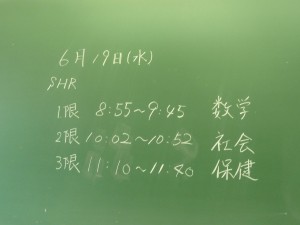 6月19日(水)
SHR
1限 8:55~9:45 数学
2限 10:02~10:52 社会
3限 11:10~11:40 保健